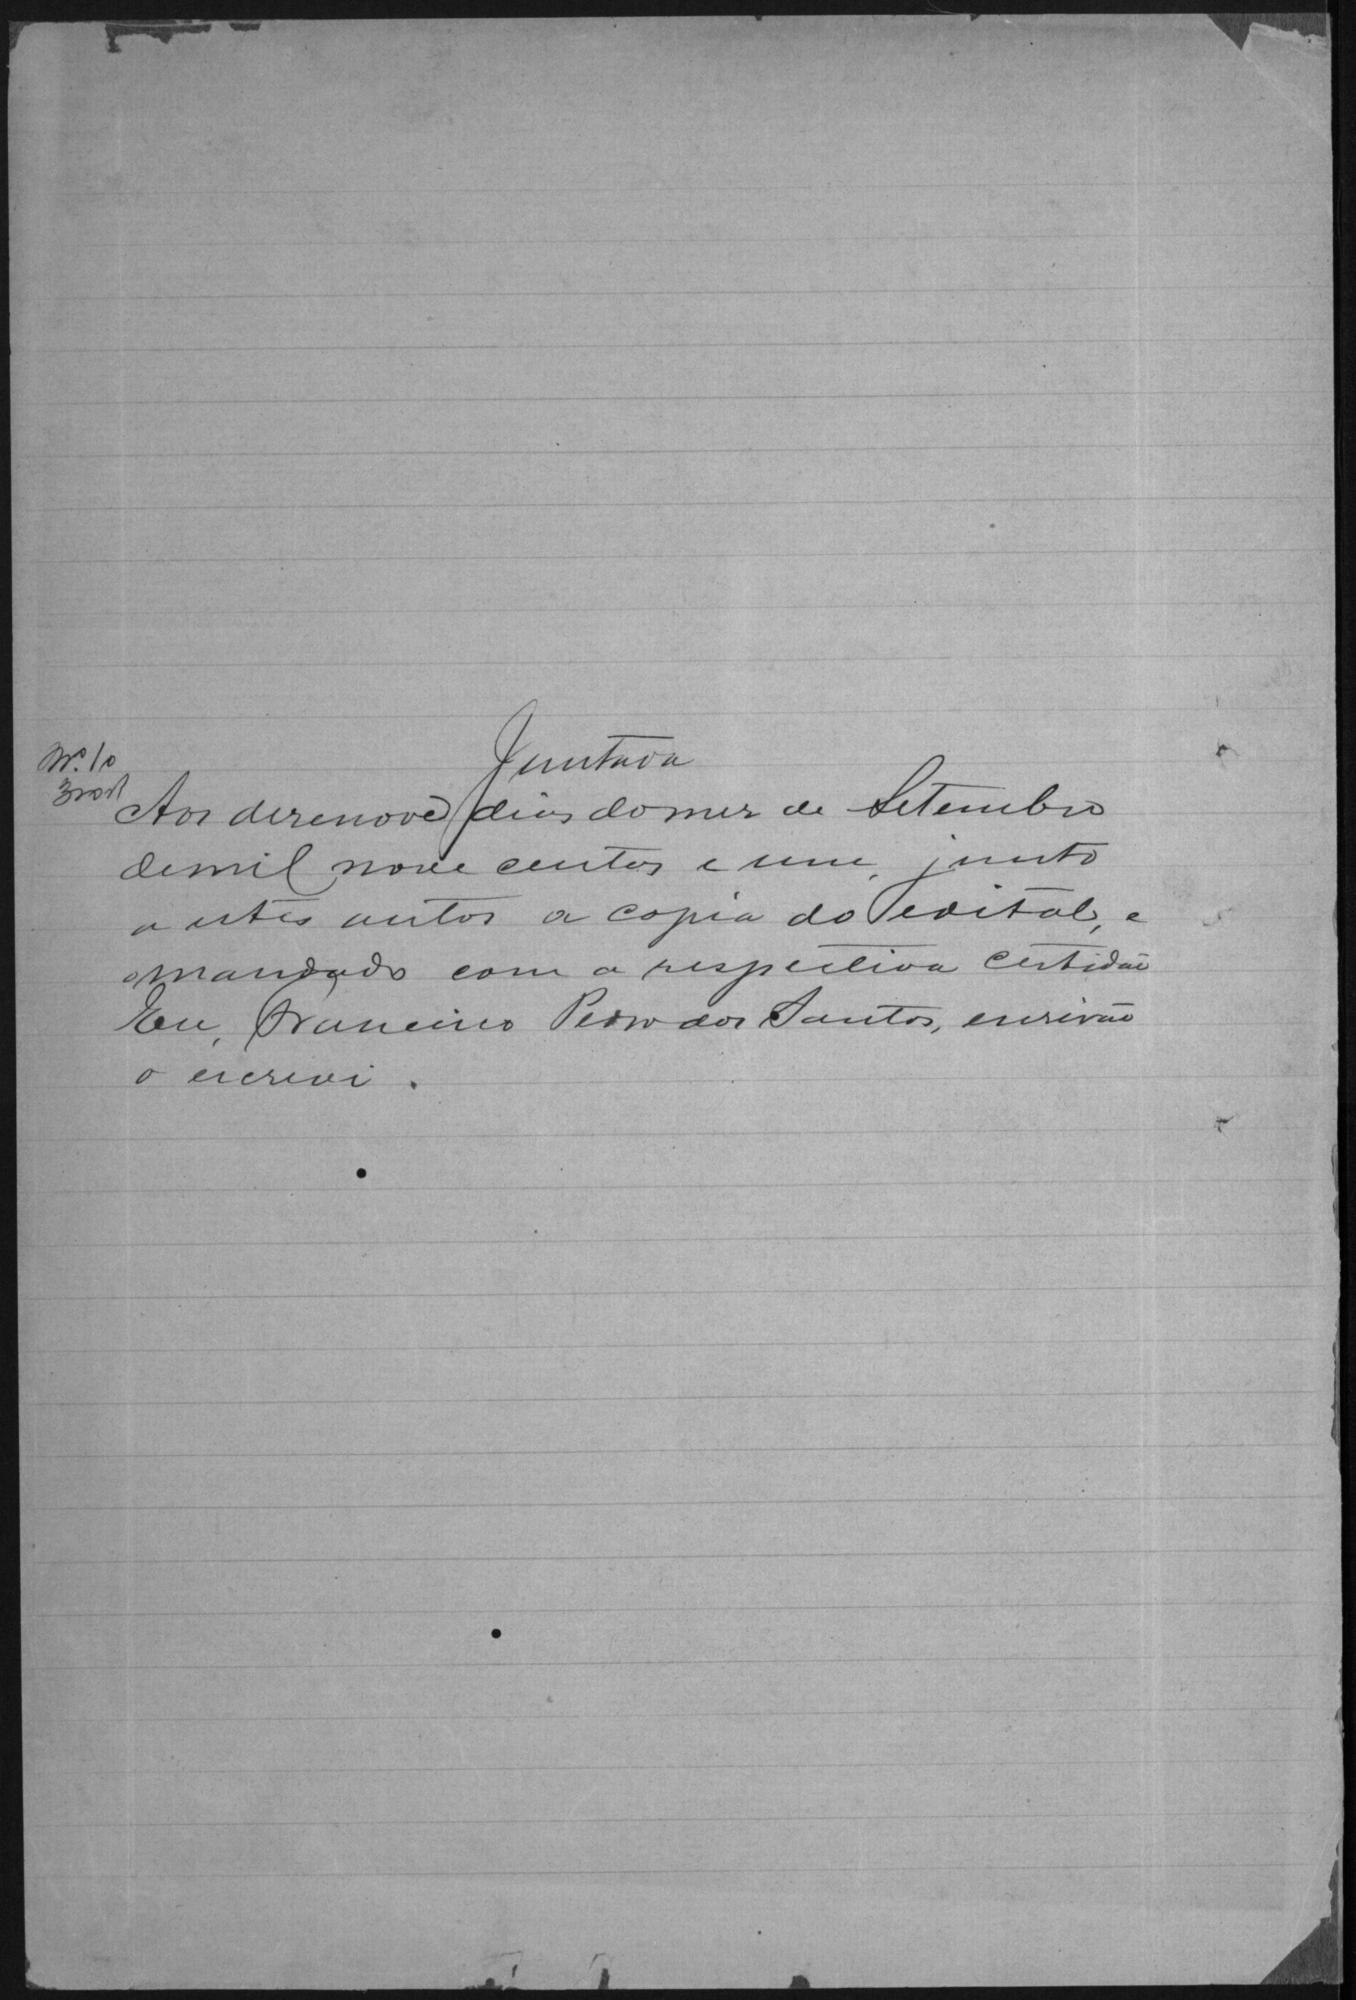 Juntada
Nº. 10
Aos desenove dias do mez de Setembro
de mil nove centos e um, junto
a estes autos a copia do edital, e
o mandado com a respectiva certidão
Eu, Francisco Pedro dos Santos, escrivão
o escrevi.